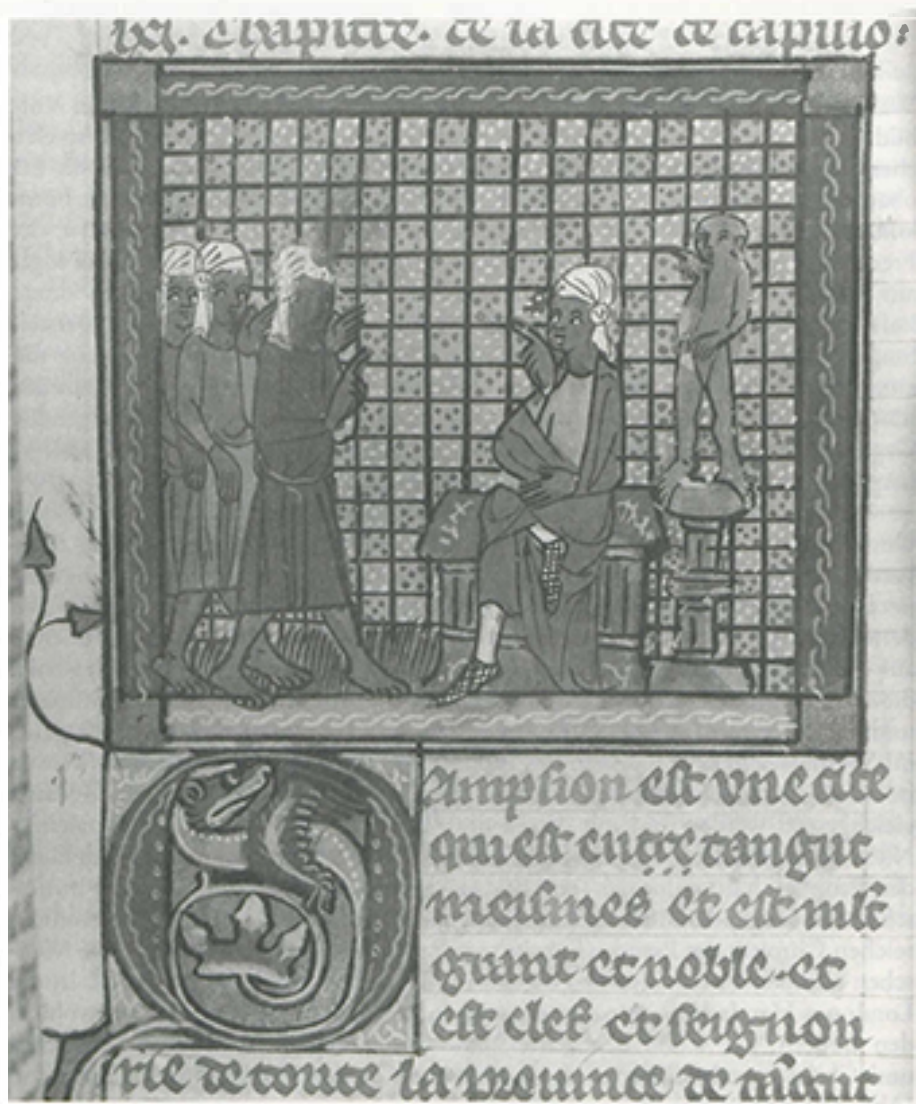 Chapitre. de la cite de
Campsion est vne cite
qui est entre tangut
meismes et est mlt
grant et noble. et
est clef et seignou
rie de toute la prouince de tãgut